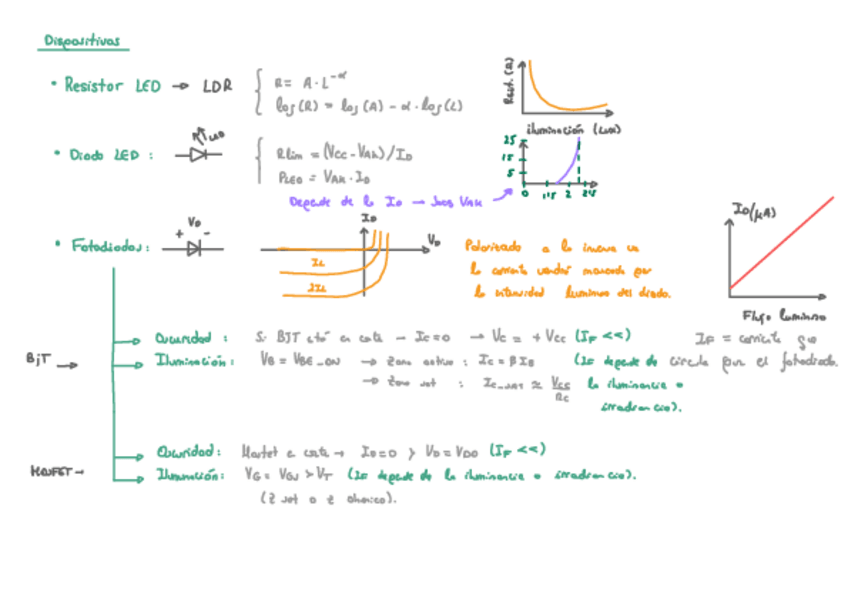 Dispositivos
• Resistor LED → LDR
R = A · L^-α
log(R) = log(A) - α · log(L)
Resist. (Ω)
iluminación (Lux)
• Diodo LED :
Rlim = (Vcc - VAK) / ID
PLED = VAK · ID
Depende de la ID → VAK
25
15
5
0 1,5 2 2,5
• Fotodiodos :
+ VD -
ID
VD
IL
2IL
Polarizado a la inversa
la corriente vendrá marcada por
la intensidad luminosa del diodo.
ID (μA)
Flujo luminoso
BJT →
Oscuridad : Si BJT está en corte → IC = 0 → VC = + Vcc (IF <<)
IF = corriente que
circula por el fotodiodo.
Iluminación : VB = VBE_ON → zona activa : IC = β IB (IF depende de
→ zona sat : IC_SAT ≈ Vcc / RC la iluminancia o
irradiancia).
MOSFET →
Oscuridad : Mosfet en corte → ID = 0 > VD = VDD (IF <<)
Iluminación : > VT (IF depende de la iluminancia o irradiancia).
(z sat o z ohmica).